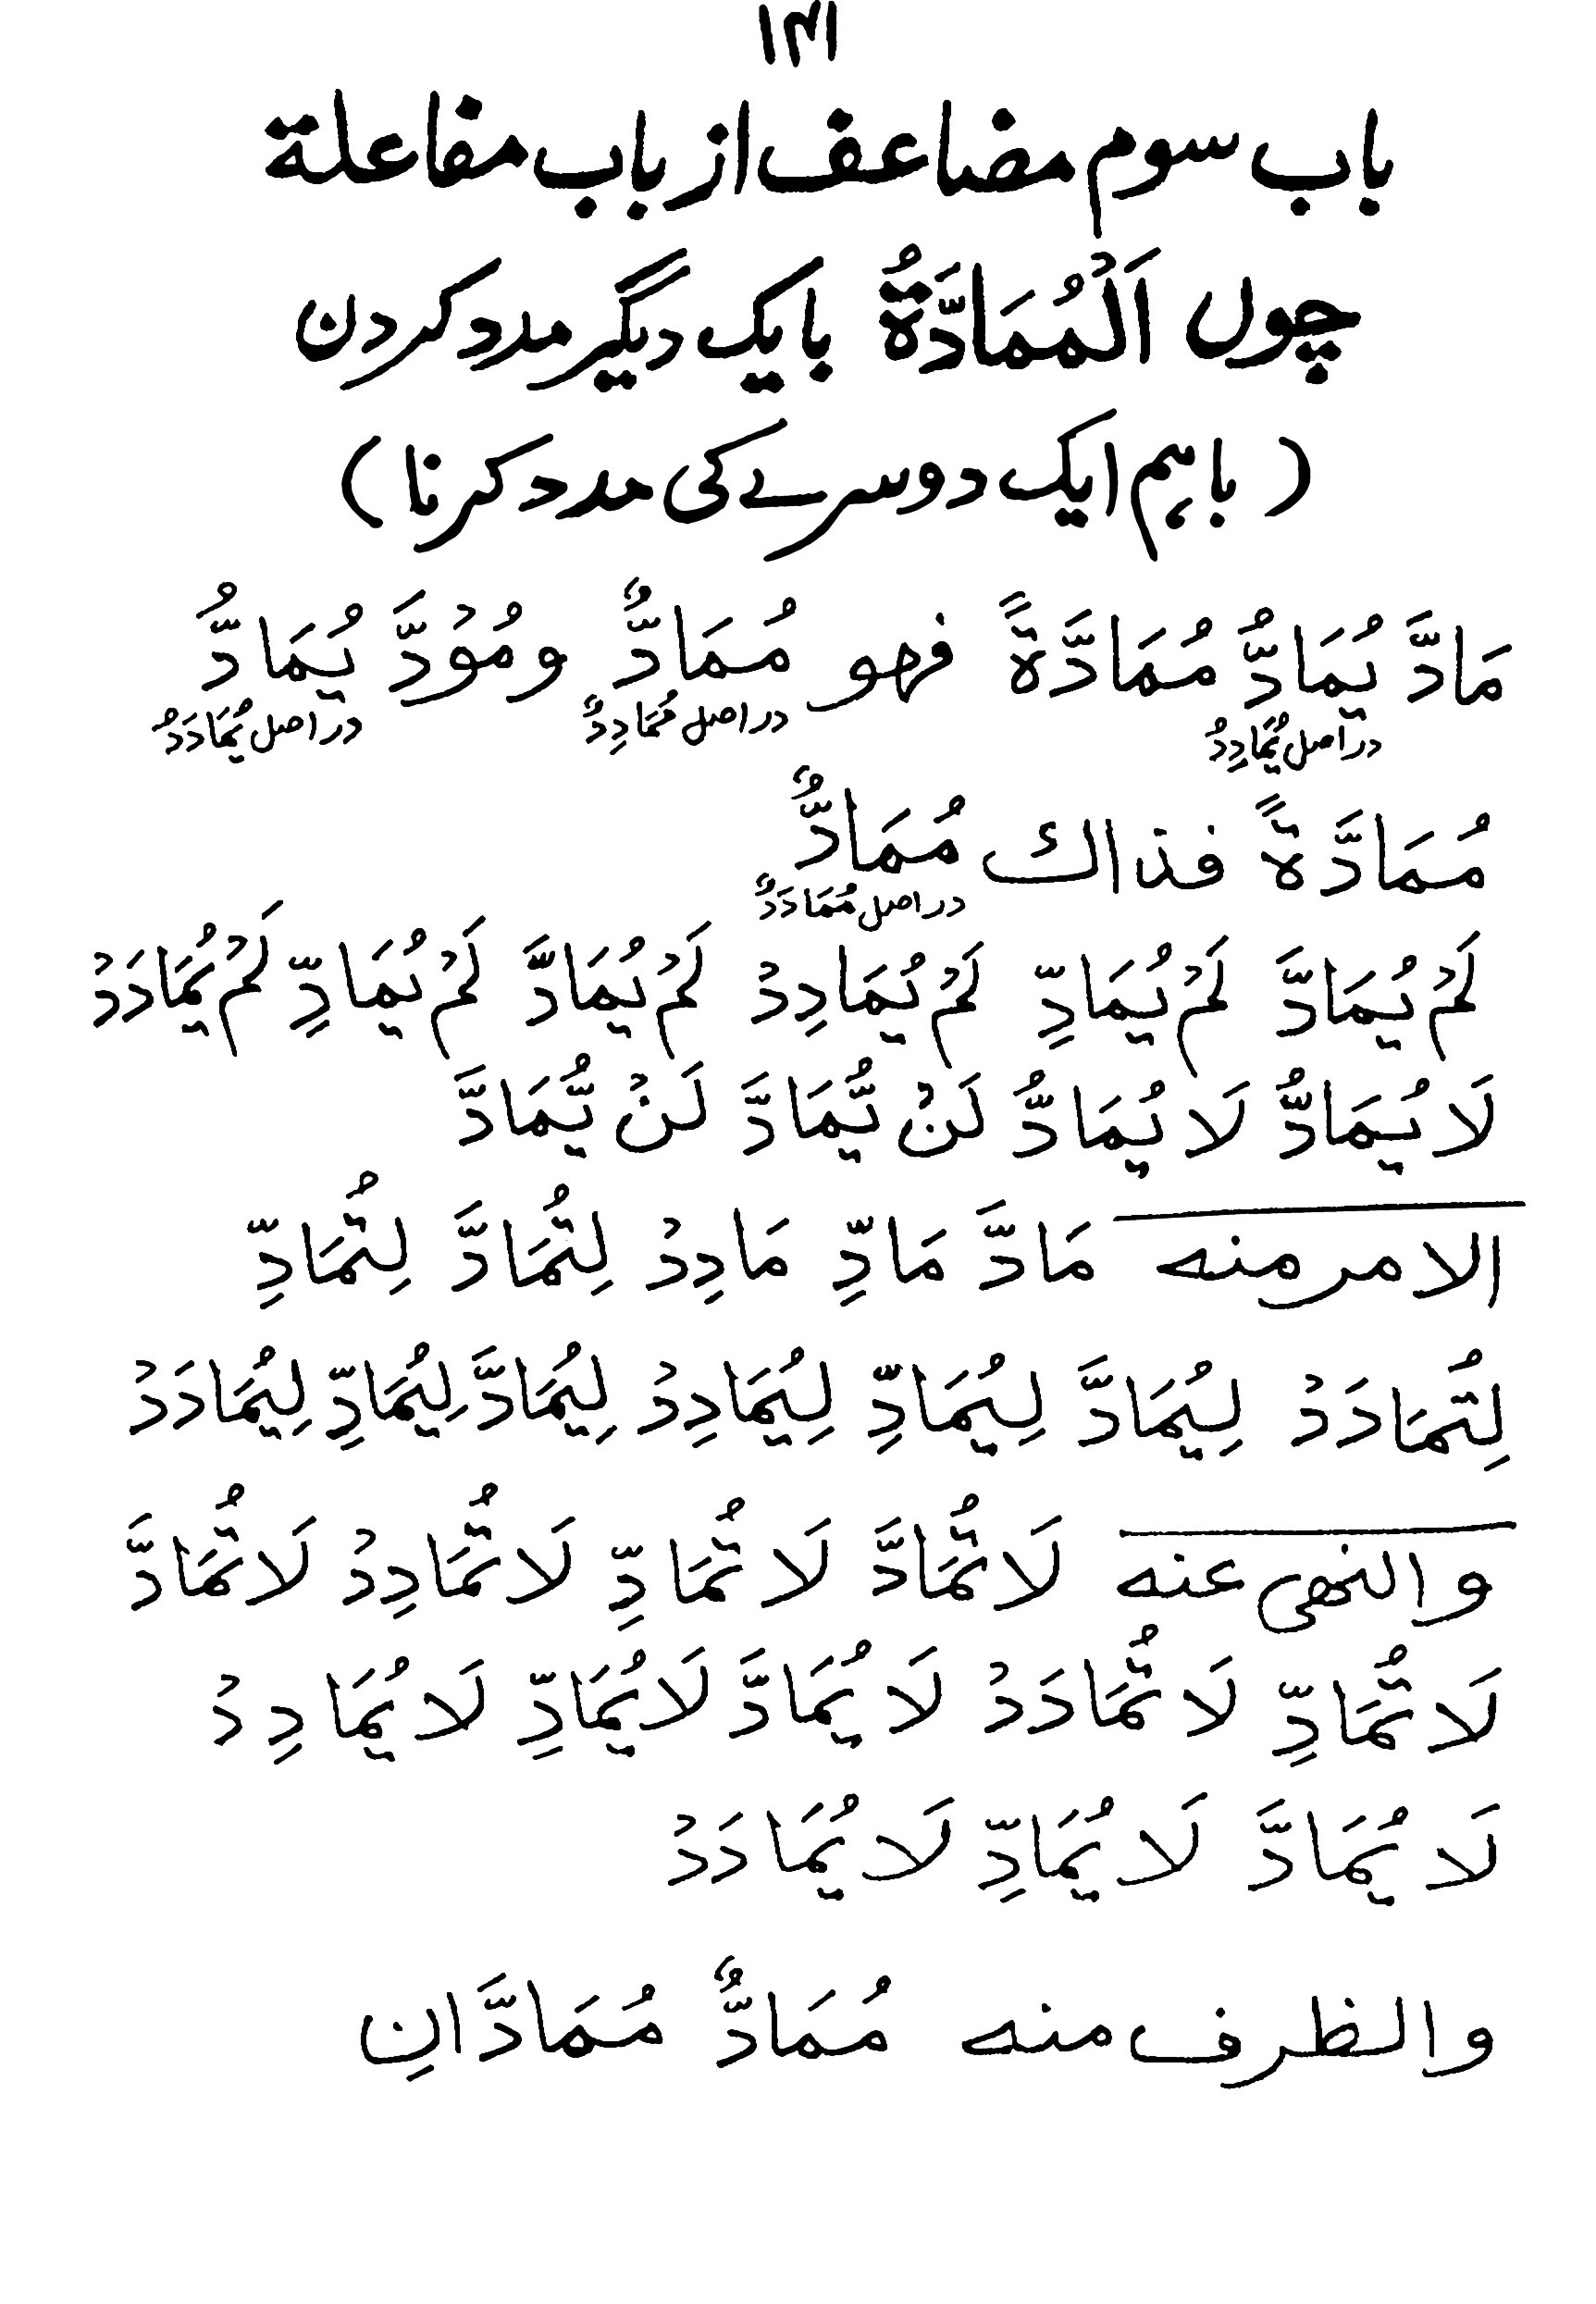 ۱۴۱
باب سوم مضاعف از باب مفاعلة
چوں اَلْمُمَادَّةُ بایک دیگر مدد کردن
(باہم ایک دوسرے کی مدد کرنا)
مَادَّ يُمَادُّ مُمَادَّةً فهو مُمَادٌّ و مُوْدَّ يُمَادُّ
دراصل يُمَادِدُ دراصل مُمَادِدٌ دراصل يُمَادَدُ
مُمَادَّةً فذاك مُمَادٌّ
دراصل مُمَادَدٌ
لَمْ يُمَادَّ لَمْ يُمَادِّ لَمْ يُمَادِدْ لَمْ يُمَادَّ لَمْ يُمَادِّ لَمْ يُمَادَدْ
لَا يُمَادُّ لَا يُمَادُّ لَنْ يُّمَادَّ لَنْ يُّمَادَّ
الامر منه مَادَّ مَادِّ مَادِدْ لِتُمَادَّ لِتُمَادِّ
لِتُمَادَدْ لِيُمَادَّ لِيُمَادِّ لِيُمَادِدْ لِيُمَادَّ لِيُمَادِّ لِيُمَادَدْ
والنهى عنه لَا تُمَادَّ لَا تُمَادِّ لَا تُمَادِدْ لَا تُمَادَّ
لَا تُمَادِّ لَا تُمَادَدْ لَا يُمَادَّ لَا يُمَادِّ لَا يُمَادِدْ
لَا يُمَادَّ لَا يُمَادِّ لَا يُمَادَدْ
والظرف منه مُمَادٌّ مُمَادَّانِ